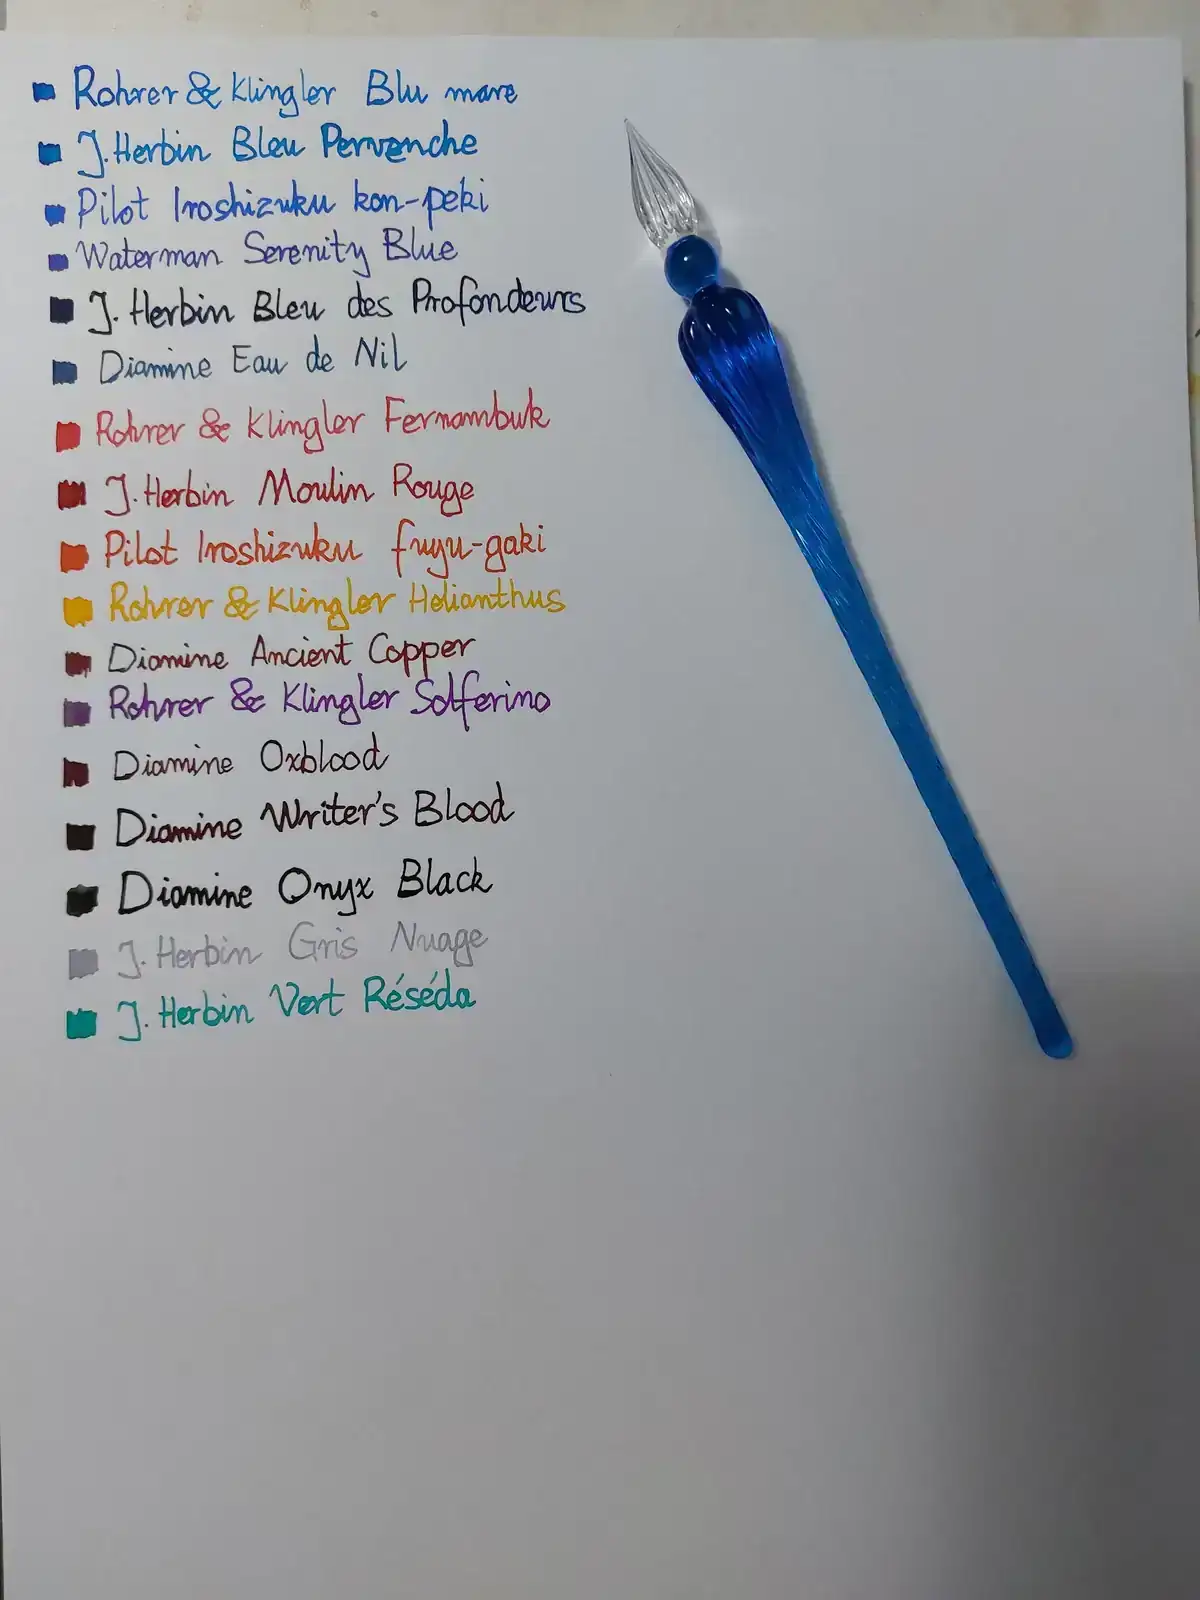 Rohrer & Klingler Blu mare
J. Herbin Bleu Pervenche
Pilot Iroshizuku kon-peki
Waterman Serenity Blue
J. Herbin Bleu des Profondeurs
Diamine Eau de Nil
Rohrer & Klingler Fernambuk
J. Herbin Moulin Rouge
Pilot Iroshizuku fuyu-gaki
Rohrer & Klingler Helianthus
Diamine Ancient Copper
Rohrer & Klingler Solferino
Diamine Oxblood
Diamine Writer's Blood
Diamine Onyx Black
J. Herbin Gris Nuage
J. Herbin Vert Réséda